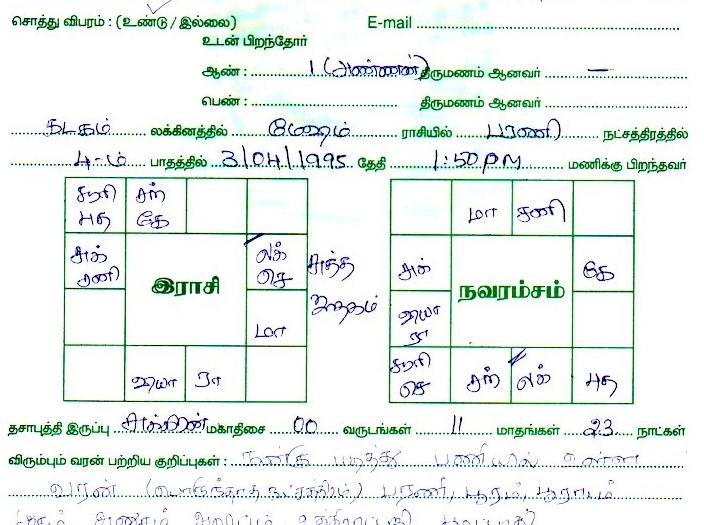 சொத்து விபரம் : (உண்டு / இல்லை) E-mail
உடன் பிறந்தோர்
ஆண் : 1 (அண்ணன்) திருமணம் ஆனவர் : —
பெண் : திருமணம் ஆனவர் :
கடகம் லக்கினத்தில் மேஷம் ராசியில் பரணி நட்சத்திரத்தில்
4-ம் பாதத்தில் 3/04/1995 தேதி 1:50 PM மணிக்கு பிறந்தவர்
சூரி சந் மா சனி
புத கே
சுக் லக் சுத்த சுக் கே
சனி செ ஜாதகம்
இராசி நவரம்சம்
மா வியா
ரா
வியா ரா சூரி சந் லக் புத
செ
தசாபுத்தி இருப்பு சுக்கிரன் மகாதிசை 00 வருடங்கள் 11 மாதங்கள் 23 நாட்கள்
விரும்பும் வரன் பற்றிய குறிப்புகள் : நன்கு படித்து பணியில் உள்ள
வரன் (பொருந்தாத நட்சத்திரம்) பரணி, பூரம், பூராடம்